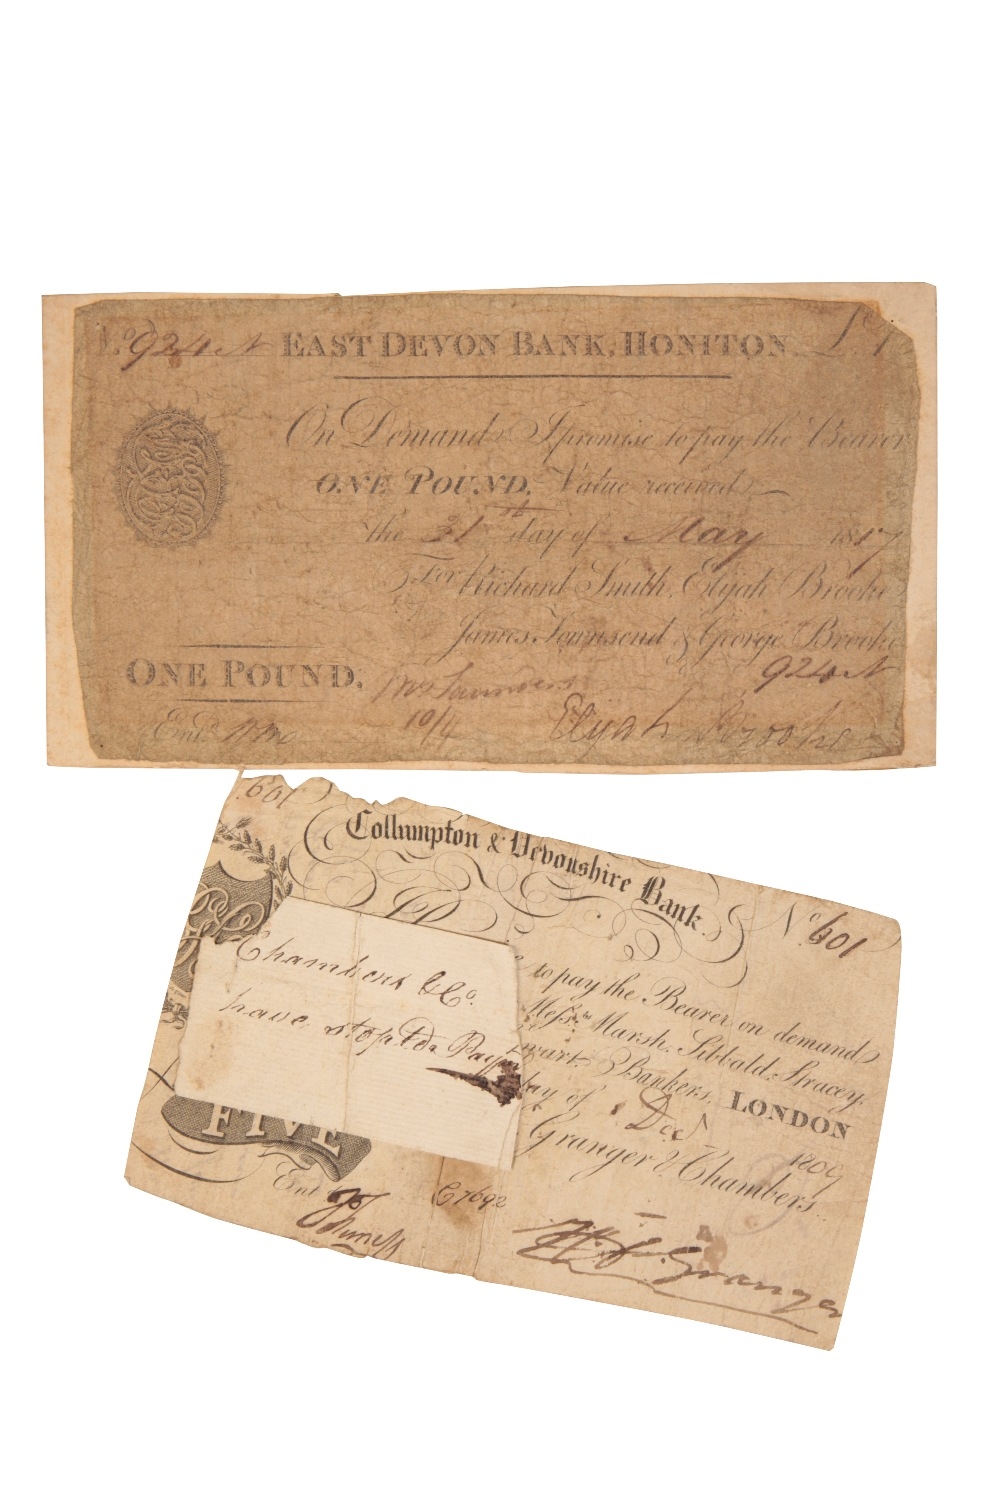 No. 924 N EAST DEVON BANK, HONITON. £ 1
On Demand I promise to pay the Bearer
ONE POUND, Value received
the 31st day of May 1817
For Richard Smith, Elijah Brooke
James Townsend & George Brooke
924 N
ONE POUND.
Mrs Saunders
10/4
Entd.
Elijah Brooke
601
Collumpton & Devonshire Bank.
No. 601
to pay the Bearer on demand
Messrs. Marsh, Sibbald, Stracey,
Bankers, LONDON
day of Decr 1809
Granger & Chambers.
Chambers & Co.
have stopted Pay
FIVE
Ent
C7692
Granger